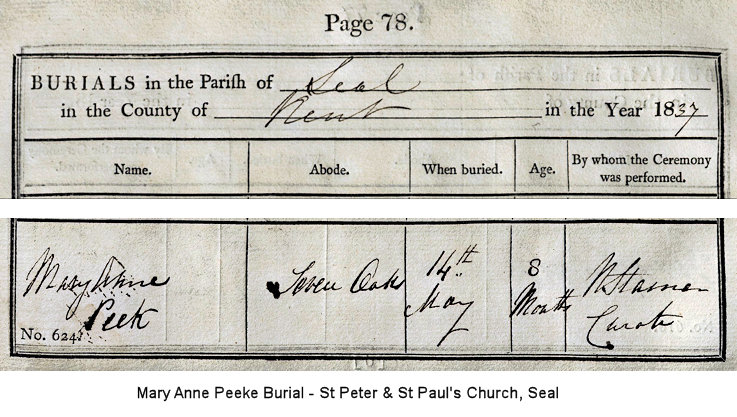 Page 78.
BURIALS in the Parish of Seal
in the County of Kent in the Year 1837
Name. Abode. When buried. Age. By whom the Ceremony was performed.
Mary Anne Seven Oaks 14th 8
Peek May Months Curate
No. 624.
Mary Anne Peeke Burial - St Peter & St Paul's Church, Seal